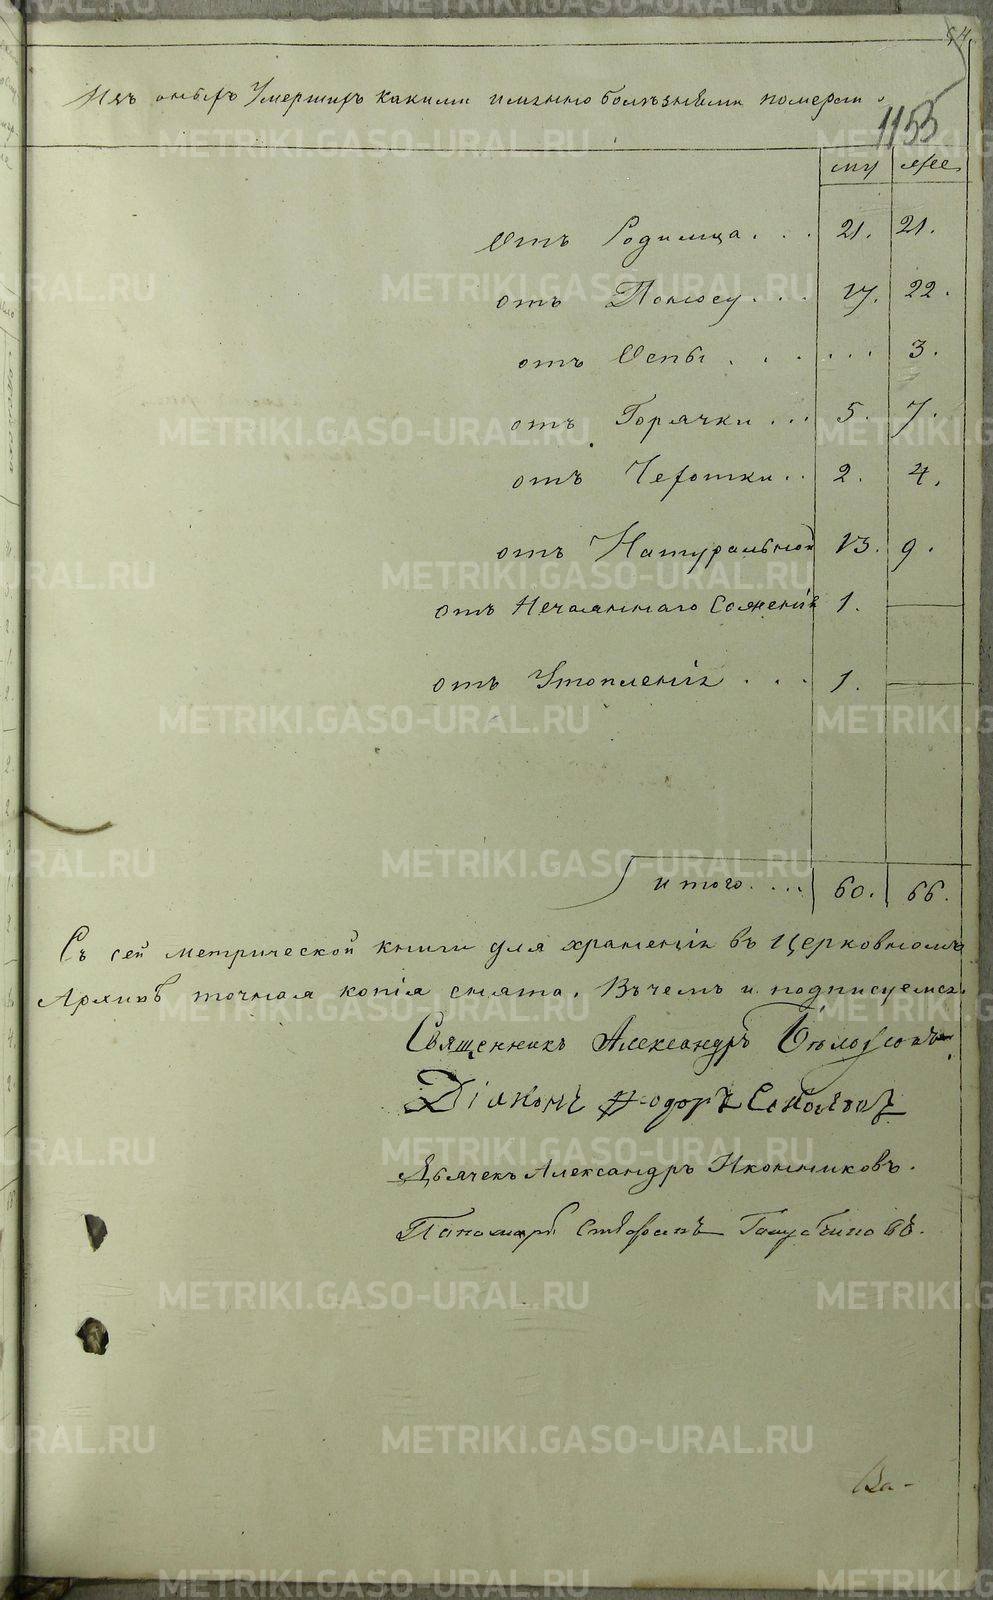 Изъ оныхъ Умершихъ какими именно болѣзнями померли
1155
му же
Отъ Родимца . . . 21. 21.
отъ Поносу . . . 17. 22.
отъ Оспы . . . . . . 3.
отъ Горячки . . . 5. 7.
отъ Чехотки . . 2. 4.
отъ Натуральной 13. 9.
отъ Нечаяннаго Сожженія 1. —
отъ Утопленія . . . 1. —
итого. . . . 60. 66.
Съ сей метрической книги для храненія въ Церковномъ
Архивѣ точная копія снята. Въ чемъ и подписуемся.
Священникъ Александръ
Діаконъ Ѳеодоръ Соколовъ
Дьячекъ Александръ Иконниковъ.
Панамарь Стефанъ Голубчиковъ.
Ва-
METRIKI.GASO-URAL.RU